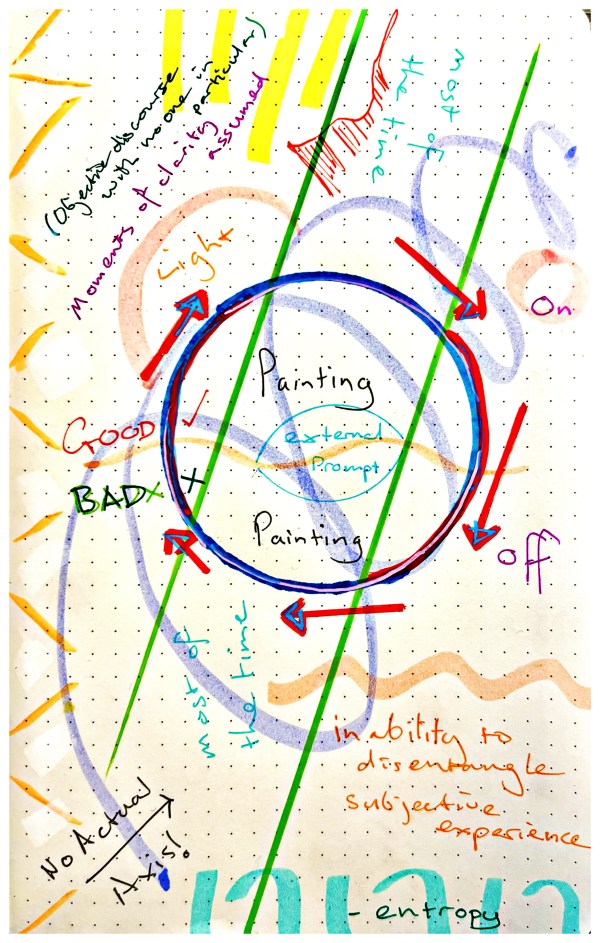 (Objective discourse
with no one in
particular)
Moments of clarity
assumed
most of
the time
Light
On
Painting
external
Prompt
GOOD
BAD
Painting
Off
most of
the time
inability to
disentangle
subjective
experience
No Actual
Axis!
- entropy